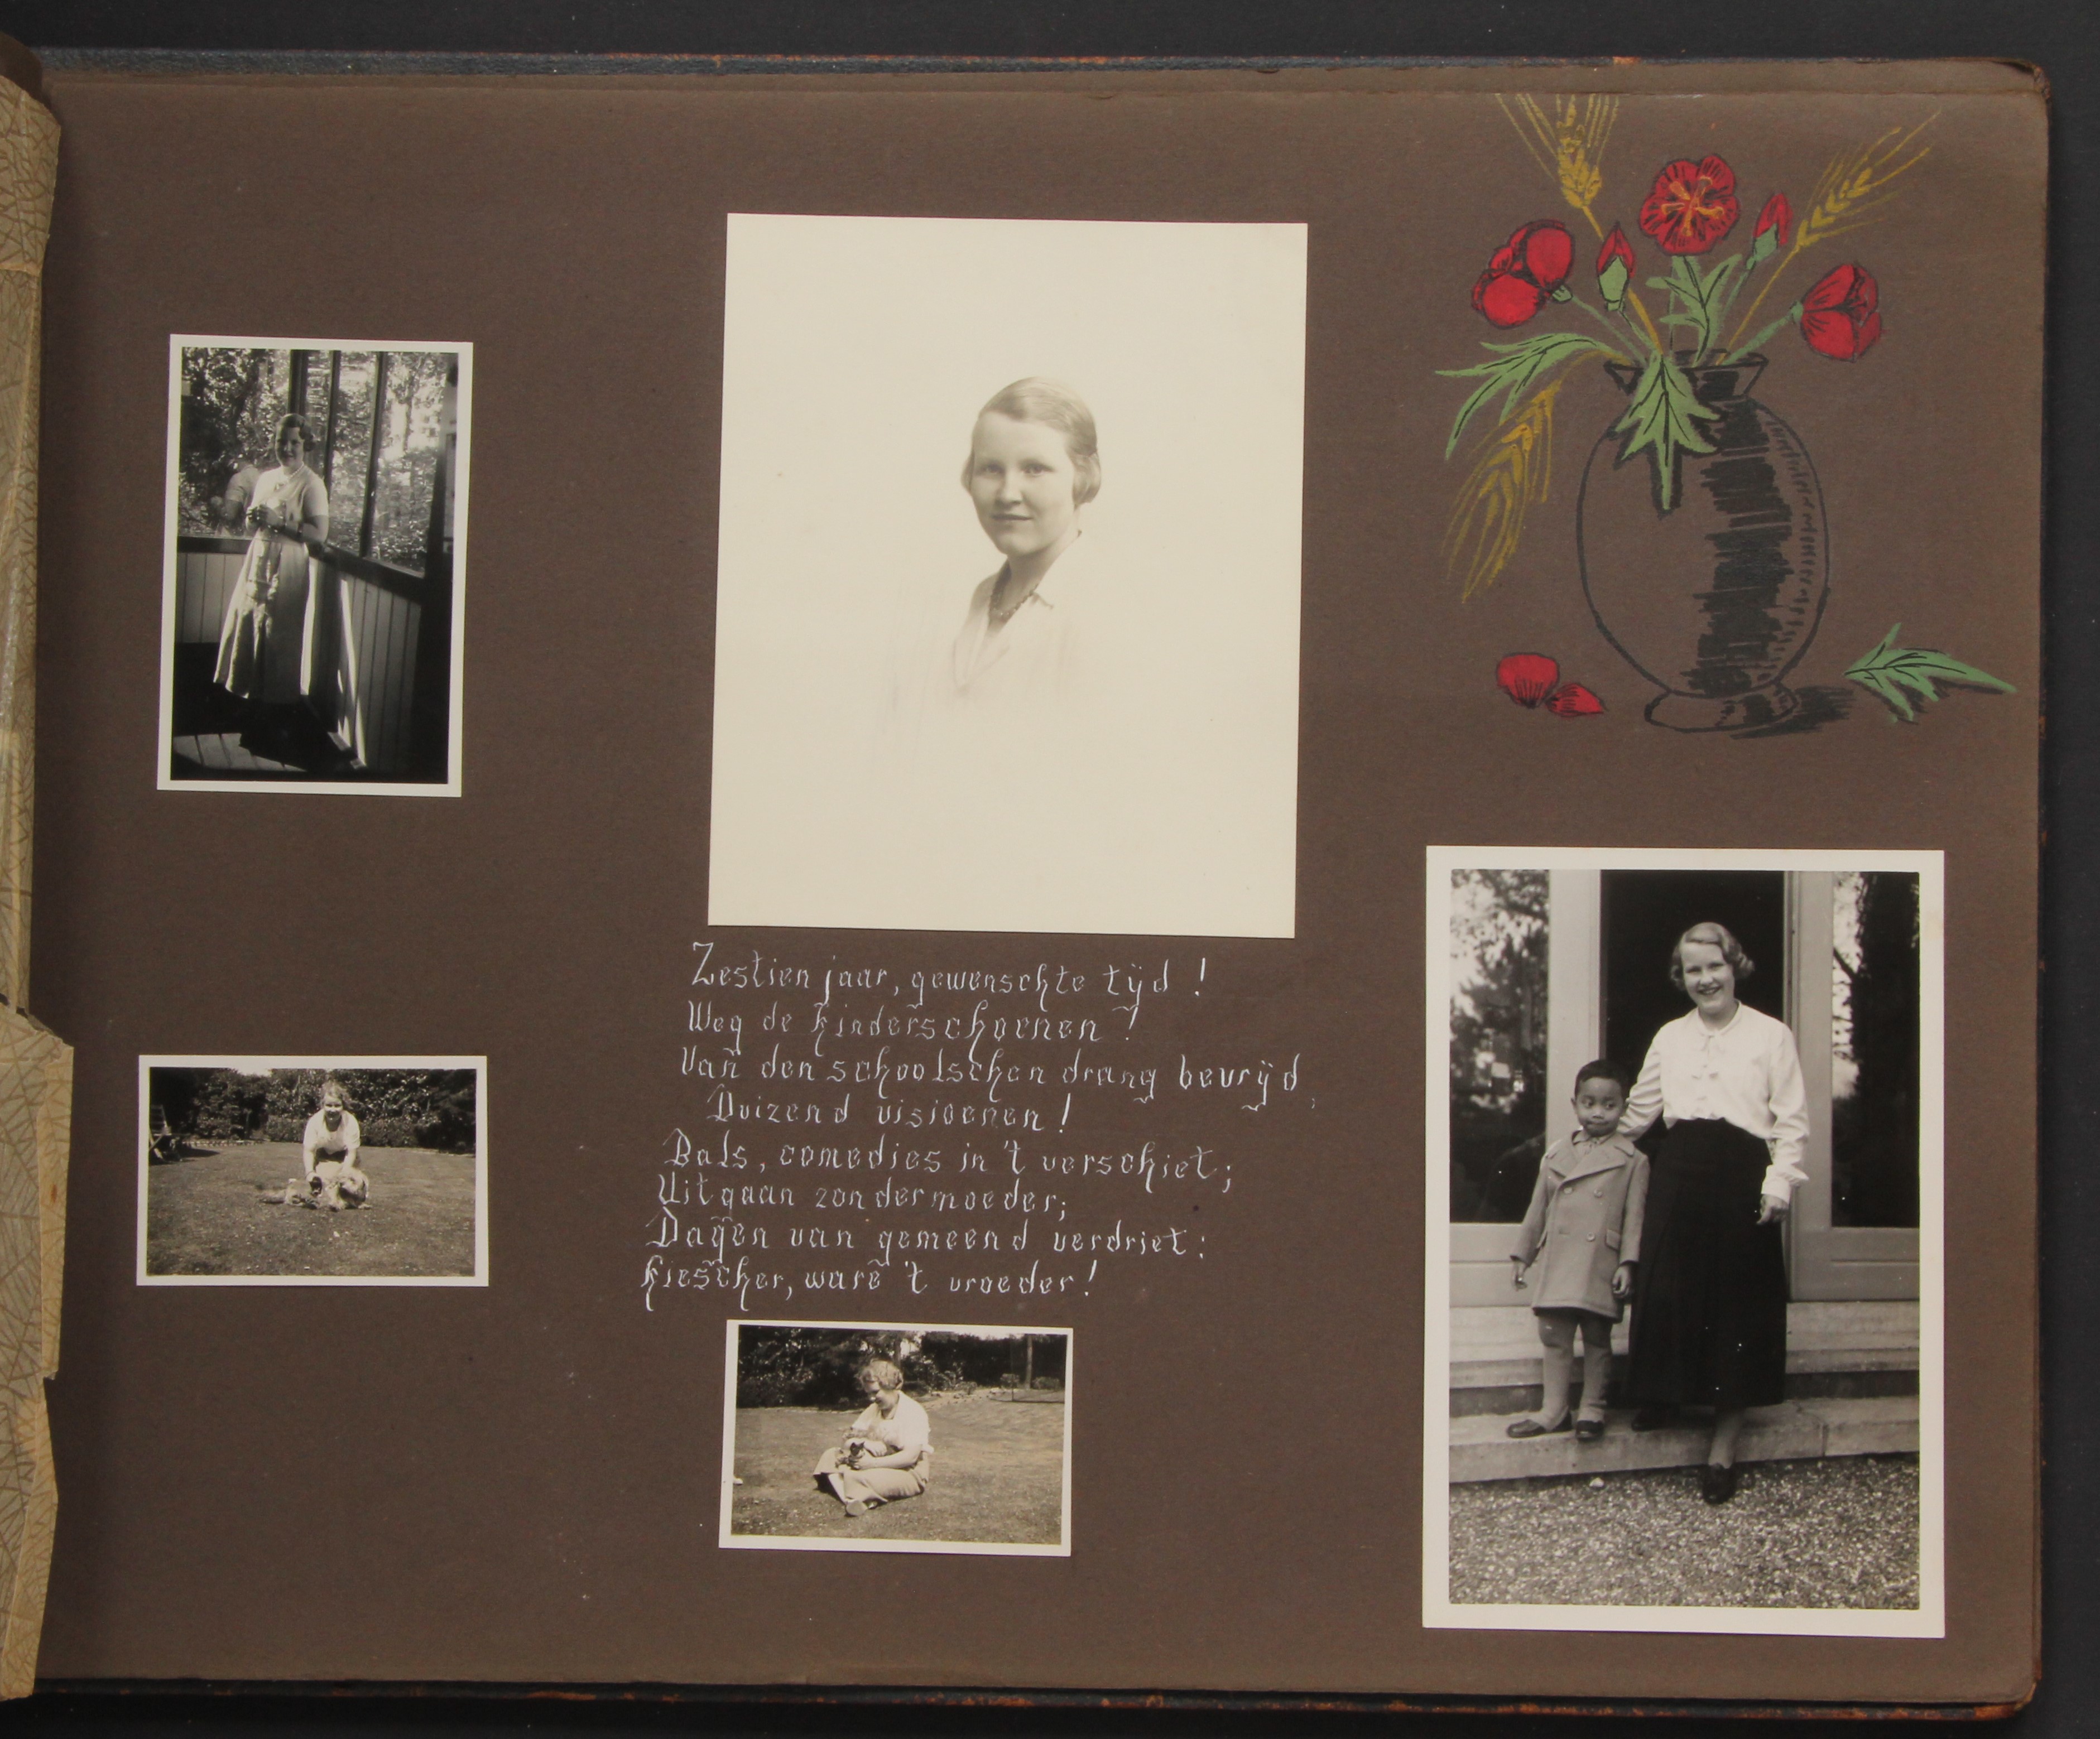 Zestien jaar, gewenschte tijd!
Weg de kinderschoenen!
Van den schoolschen drang bevrijd,
Duizend visioenen!
Bals, comedies in 't verschiet;
Uitgaan zonder moeder;
Dagen van gemeend verdriet:
Kiescher, ware 't vroeder!